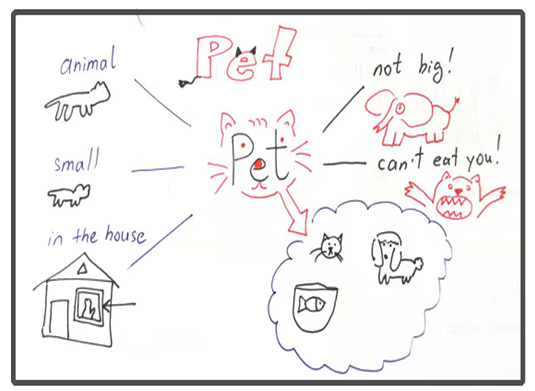 Pet
animal
small
in the house
Pet
not big!
can't eat you!